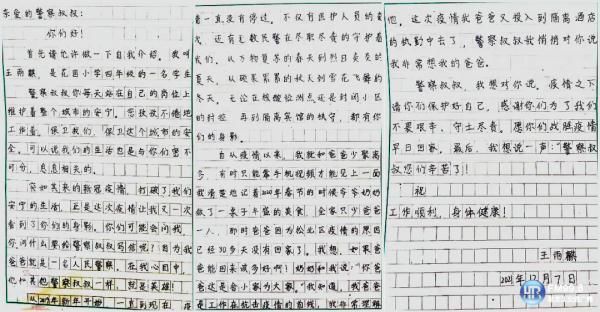 亲爱的警察叔叔:
你们好!
首先请允许做一下自我介绍。我叫
王雨麒,是花园小学四年级的一名学生
警察叔叔你每天站在自己的岗位上
维护着整个城市的安宁。您孜孜不倦地
工作着,保卫我们,保卫这个城市的安
全。可以说我们的生活也是与你们密不
可分,息息相关的。
突如其来的新冠疫情,打破了我们
安宁的生活,正是这次疫情让我又一次
看到了你们的身影。你们可能会问我,
你问什么要给警察叔叔写信呢?因为我
爸爸就是一名人民警察。在我心目中,
他和其他警察叔叔一样,就是英雄!
从2020年新年开始,一直到现在,疫
情一直没有停过。不仅有医护人员的
还有无数民警在尽职尽责的守护着
我们。从万物复苏的春天到烈日炎炎的
夏天,从硕果累累的秋天到雪花飞舞的
冬天。无论在核酸检测点还是封闭小区
的村控,再到隔离宾馆的执守,都有你
们的身影。
自从疫情以来,我就和爸爸少聚离
多,有时只能靠手机视频才能见上一面
我清楚地记着2021年春节的时候爷爷奶奶
做了一桌子丰盛的美食,全家只少爸爸
一人,那时爸爸因为松北区疫情的原因
已经30多天没有回家了。我想,如果爸
爸能回来该多好啊!奶奶和我说:“你爸
爸这是舍小家为大家。”我知道,我爸爸
是工作在抗击疫情的前线,我非常理解
他。这次疫情我爸爸又投入到隔离酒店
的执勤中去了,警察叔叔我悄悄对你说
我非常想我的爸爸。
警察叔叔,我想对你说,疫情之下
请你们保护好自己,感谢你们为了我们
不畏艰辛、守土尽责。愿你们战胜疫情
早日回家。最后,我想说一声:“警察叔
叔您们辛苦了!
祝
工作顺利,身体健康!
王雨麒
2021年12月7日